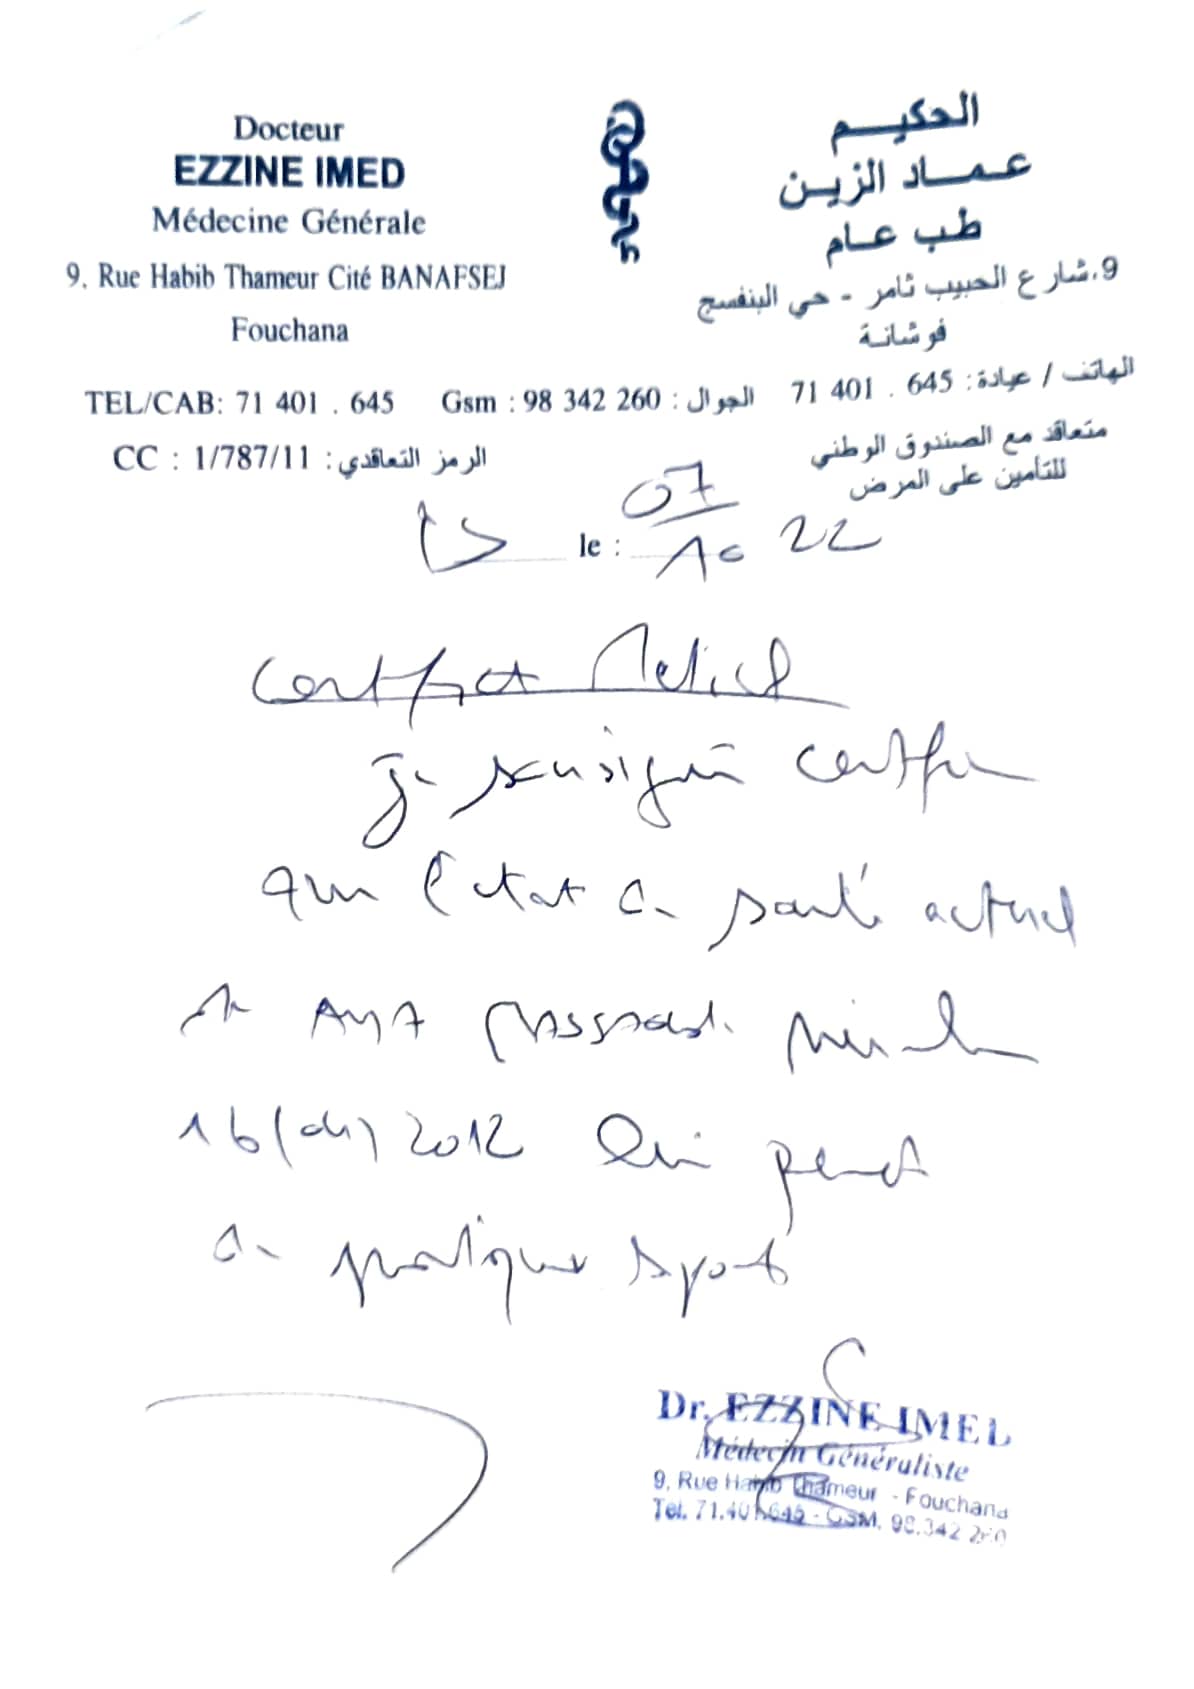 Docteur
EZZINE IMED
Médecine Générale
9, Rue Habib Thameur Cité BANAFSEJ
Fouchana
الحكيم
عماد الزين
طب عام
9،شارع الحبيب ثامر - حي البنفسج
فوشانة
الهاتف / عيادة: 645 . 401 71
TEL/CAB: 71 401 . 645 Gsm : 98 342 260 : الجوال
CC : 1/787/11 : الرمز التعاقدي
متعاقد مع الصندوق الوطني
للتأمين على المرض
le : 07/10 22
Certificat Médical
Je soussigné certifie
que l'état de santé actuel
de AYA née le
16 2012 lui permet
de pratiquer sport
Dr. EZZINE IMED
Médecin Généraliste
9, Rue Habib Thameur - Fouchana
Tel. 71.401.645 - GSM. 98.342 260